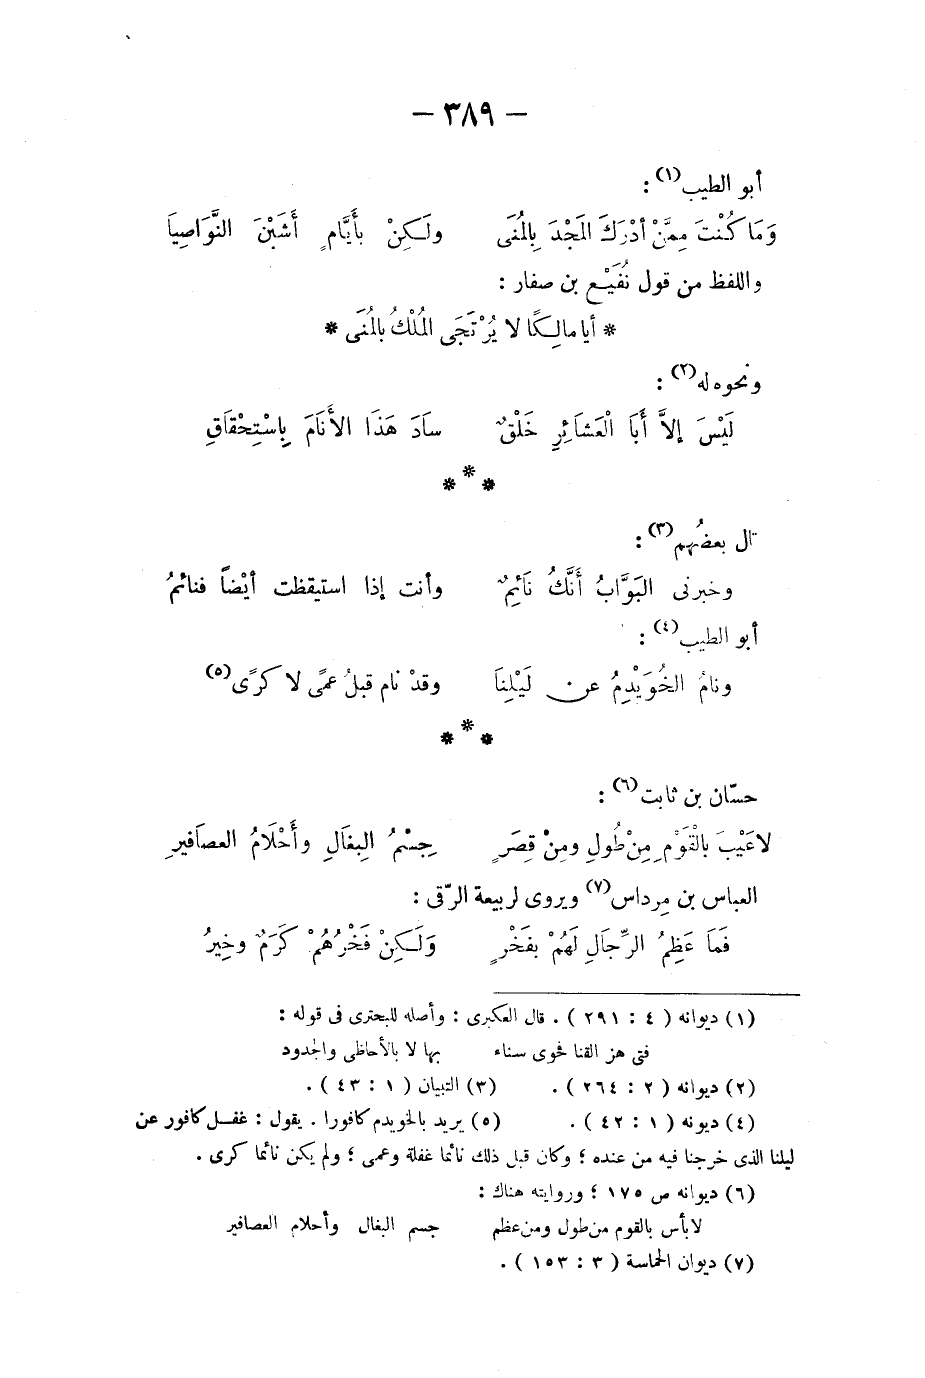 — ٣٨٩ —
أبو الطيب(١) :
وَمَا كُنْتَ مِمَّنْ أدْرَكَ المَجْدَ بِالمُنَى ولَكِنْ بأَيَّامٍ أَشَبْنَ النَّوَاصِيَا
واللفظ من قول نُفَيْعٍ بن صفار :
* أيا مالِكًا لا يُرْتَجَى المُلْكُ بالمُنَى *
ونحوه له(٢) :
لَيْسَ إلاَّ أَبَا الْعَشَائِرِ خَلْقٌ سَادَ هَذَا الأَنَامَ بِاسْتِحْقَاقِ
* * *
ال بعضُهم(٣) :
وخبرنى البَوَّابُ أَنَّكُ نَائِمٌ وأنت إذا استيقظت أيْضاً فنائمُ
أبو الطيب(٤) :
ونامُ الخُوَيْدِمُ عن لَيْلِنَا وقدْ نام قبلُ عمًى لا كرًى(٥)
* * *
حسّان بن ثابت(٦) :
لاعَيْبَ بالْقَوْمِ مِنْ طُولٍ ومِنْ قِصَرٍ جِسْمُ البِغَالِ وأَحْلَامُ العصَافيرِ
العباس بن مِرداس(٧) ويروى لربيعة الرّقى :
فَمَا عَظِمُ الرِّجَالِ لَهُمْ بفَخْرٍ وَلَكِنْ فَخْرُهُمْ كَرَمٌ وخِيرُ
(١) ديوانه ( ٤ : ٢٩١ ) . قال العكبرى : وأصله للبحترى فى قوله :
فتى هز القنا فحوى سناء بها لا بالأحاظى والجدود
(٢) ديوانه ( ٢ : ٢٦٤ ) . (٣) التبيان ( ١ : ٤٣ ) .
(٤) ديونه ( ١ : ٤٢ ) . (٥) يريد بالخويدم كافورا . يقول : غفل كافور عن
ليلنا الذى خرجنا فيه من عنده ؛ وكان قبل ذلك نائما غفلة وعمى ؛ ولم يكن نائما كرى .
(٦) ديوانه ص ١٧٥ ؛ وروايته هناك :
لا بأس بالقوم من طول ومن عظم جسم البغال وأحلام العصافير
(٧) ديوان الحماسة ( ٣ : ١٥٣ ) .